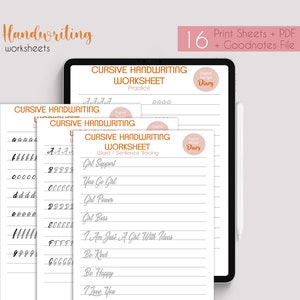 Handwriting
worksheets
16 Print Sheets + PDF
+ Goodnotes File
CURSIVE HANDWRITING
WORKSHEET
Practice
Diary
CURSIVE HANDWRITING
CURSIVE HANDWRITING
CURSIVE HANDWRITING
WORKSHEET
Word + Sentence Tracing
Diary
Girl Support
You Go Girl
Girl Power
Girl Boss
I Am Just A Girl With Ideas
Be Kind
Be Happy
I Love You